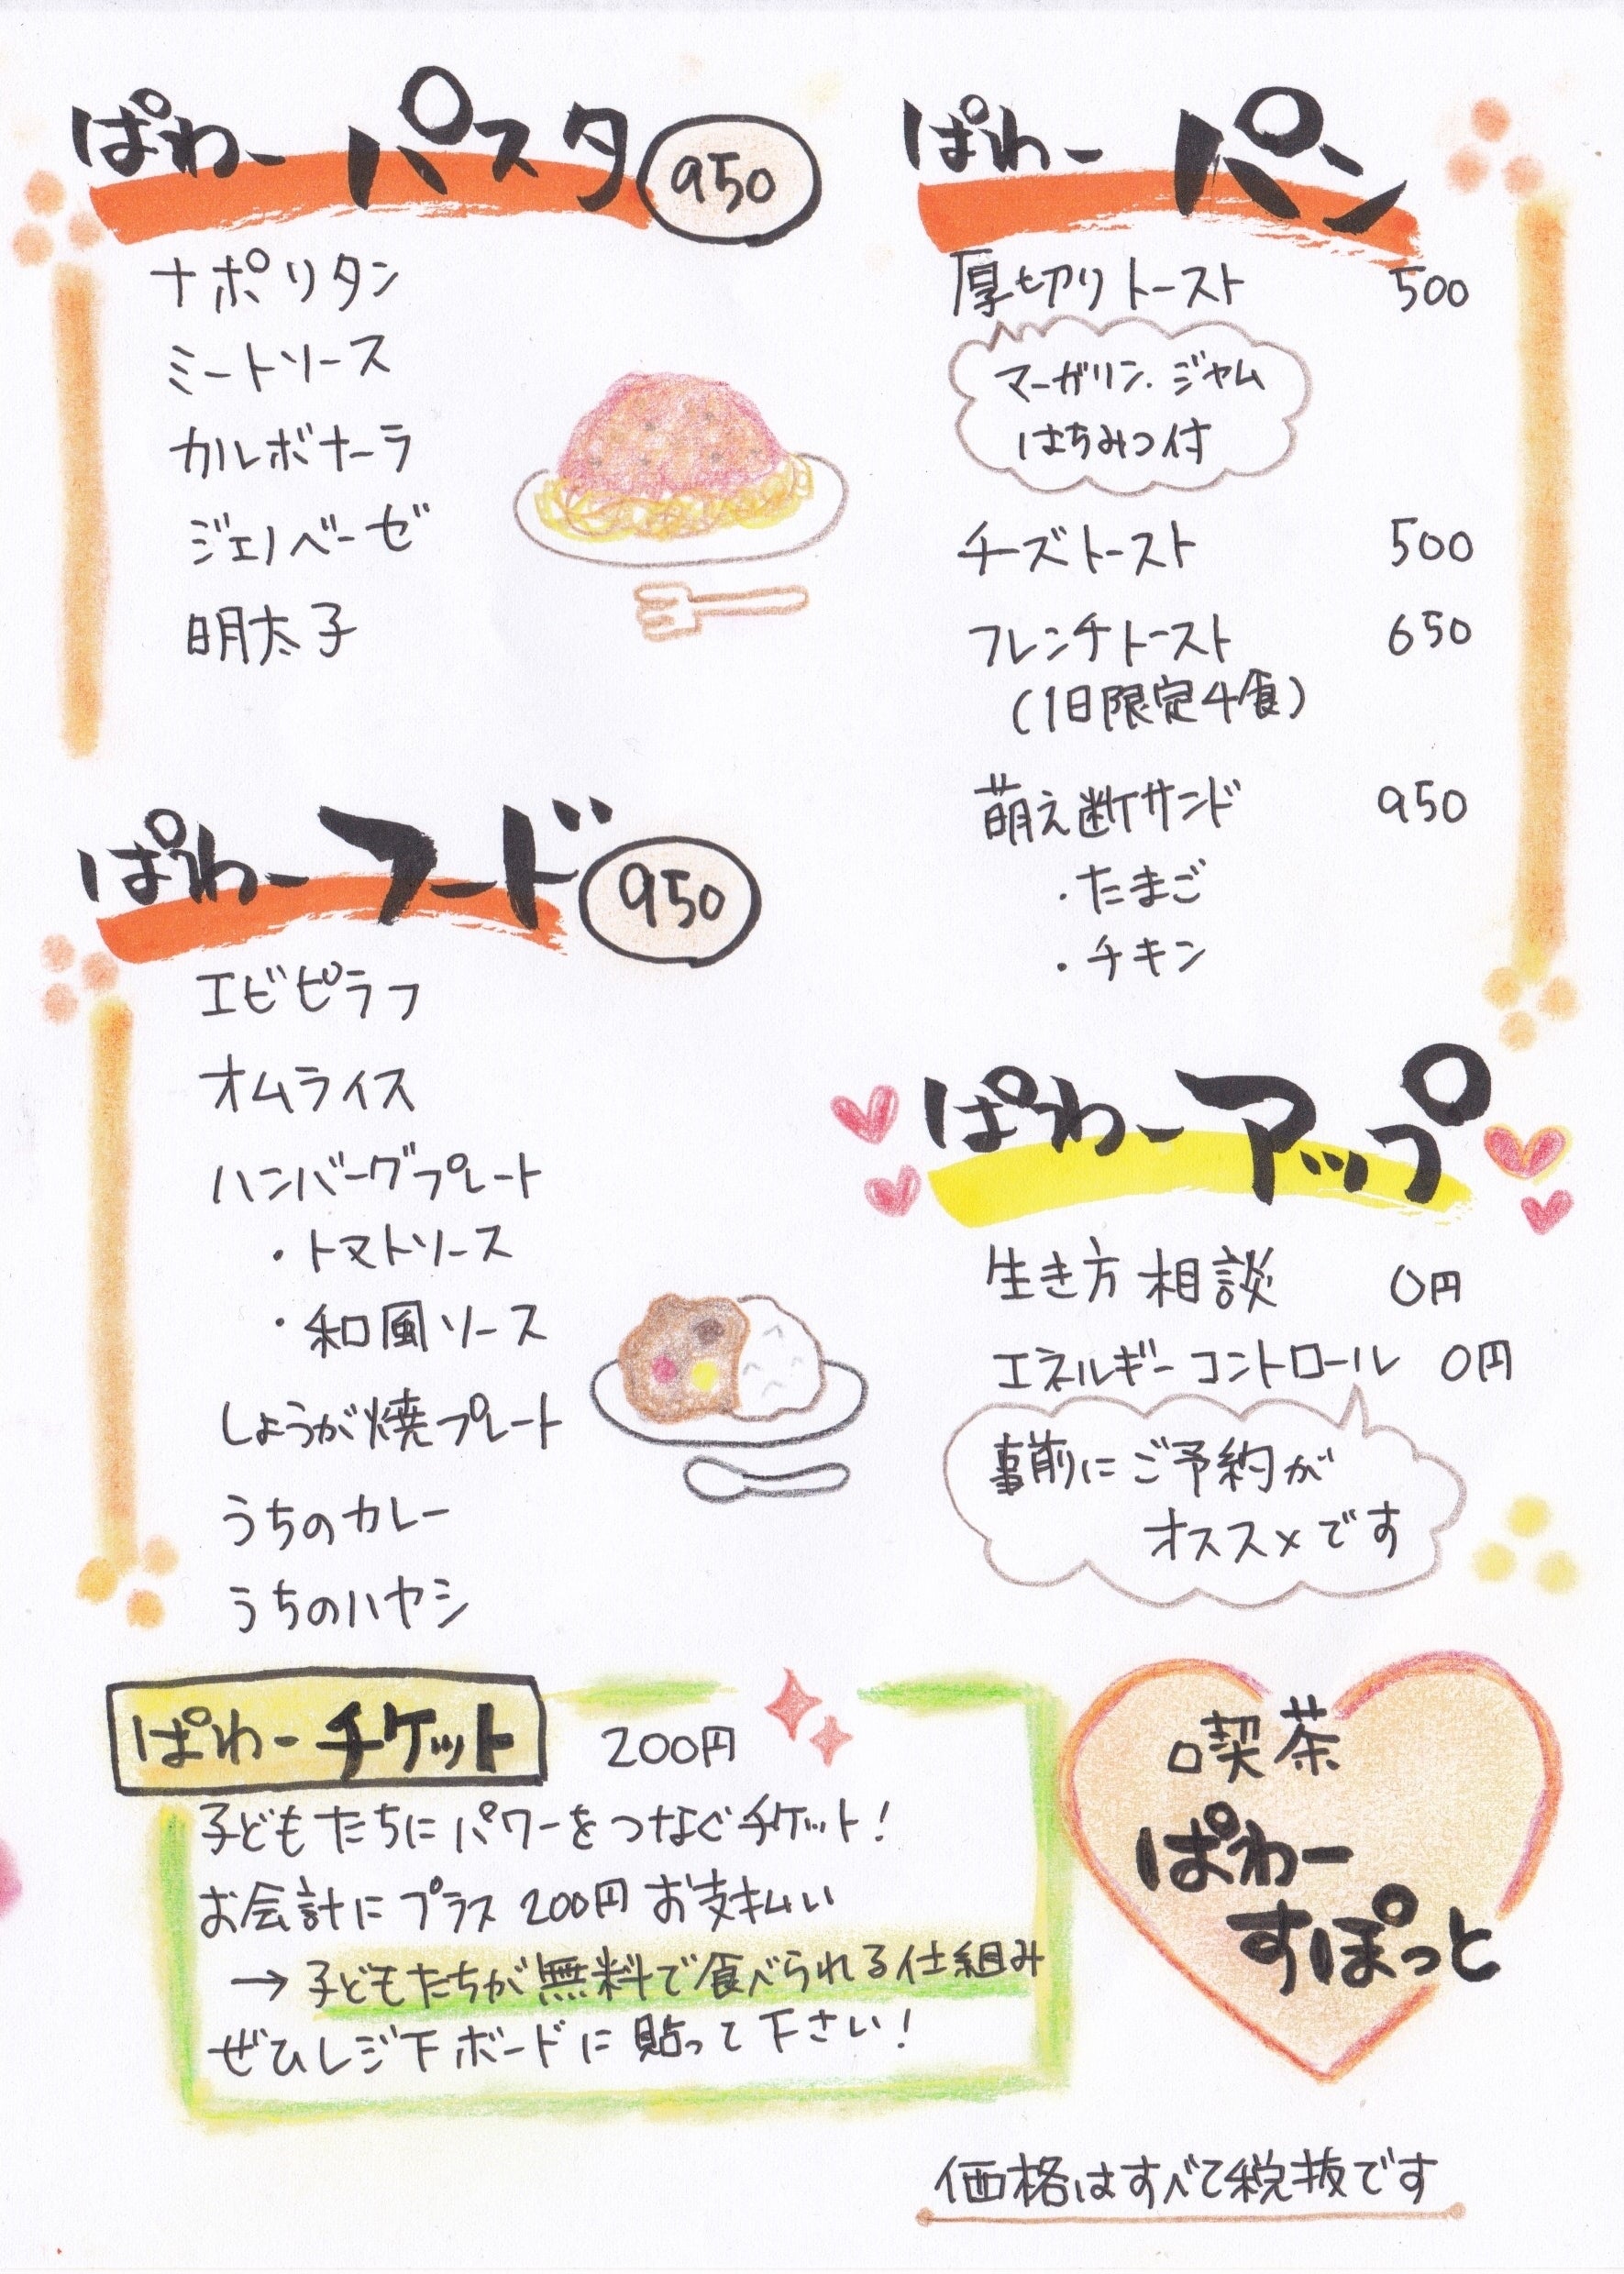 ぱわーパスタ 950
ナポリタン
ミートソース
カルボナーラ
ジェノベーゼ
明太子
ぱわーフード 950
エビピラフ
オムライス
ハンバーグプレート
・トマトソース
・和風ソース
しょうが焼プレート
うちのカレー
うちのハヤシ
ぱわーパン
厚切りトースト 500
マーガリン.ジャム
はちみつ付
チーズトースト 500
フレンチトースト 650
(1日限定4食)
萌え断サンド 950
・たまご
・チキン
ぱわーアップ
生き方相談 0円
エネルギーコントロール 0円
事前にご予約が
オススメです
ぱわーチケット 200円
子どもたちにパワーをつなぐチケット!
お会計にプラス200円お支払い
→子どもたちが無料で食べられる仕組み
ぜひレジ下ボードに貼って下さい!
喫茶
ぱわー
すぽっと
価格はすべて税抜です